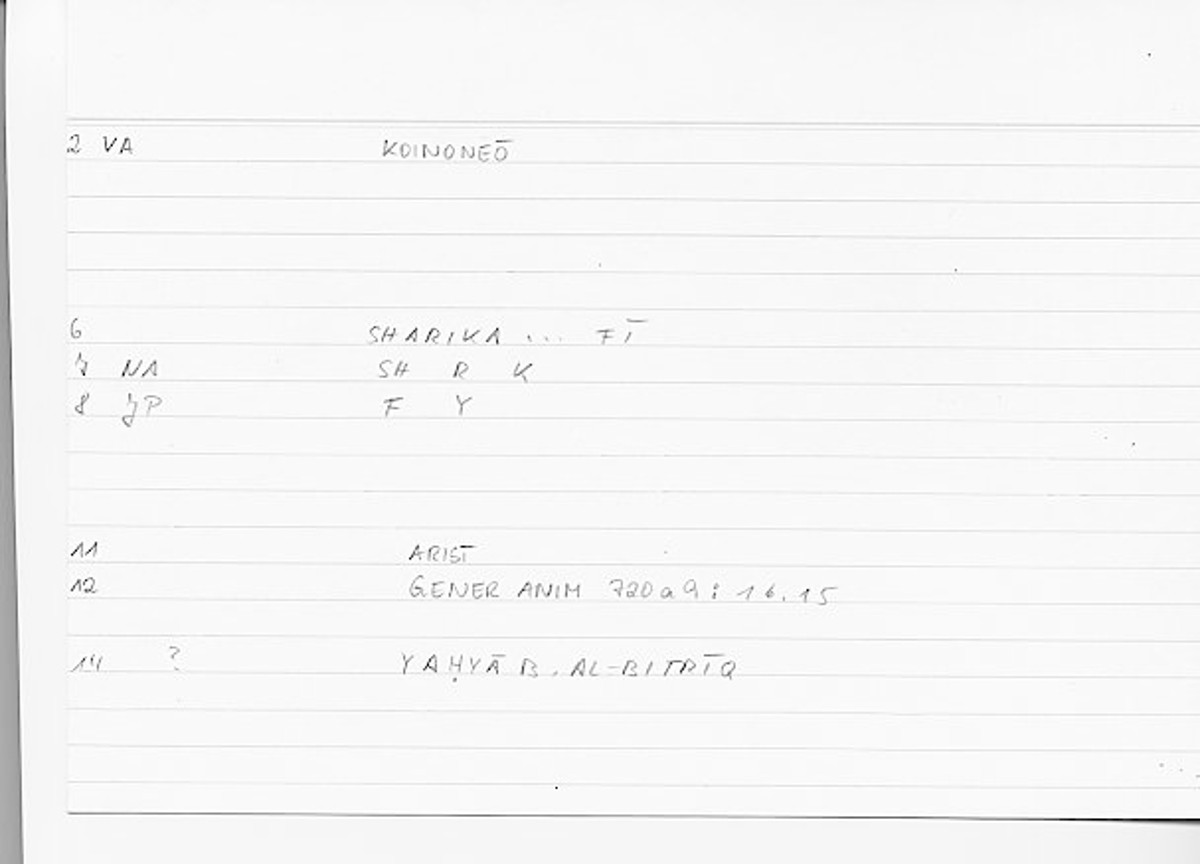 2 VA KOINONEŌ
6 SHARIKA ... FĪ
7 NA SH R K
8 JP F Y
11 ARIST
12 GENER ANIM 720a9: 16.15
14 ? YAḤYĀ B. AL-BITRĪQ